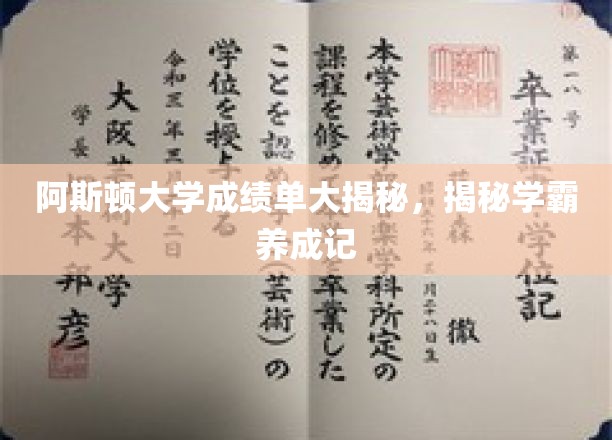 阿斯顿大学成绩单大揭秘，揭秘学霸
养成记
第一八号
卒業証 学位記
森 徹
六年三月二十八日生
本学芸術学 楽学科所定の
課程を修め を卒業した
ことを認め (芸術)の
学位を授与 る
令和三年三月 十二日
大阪芸 大学
学長 本邦彦